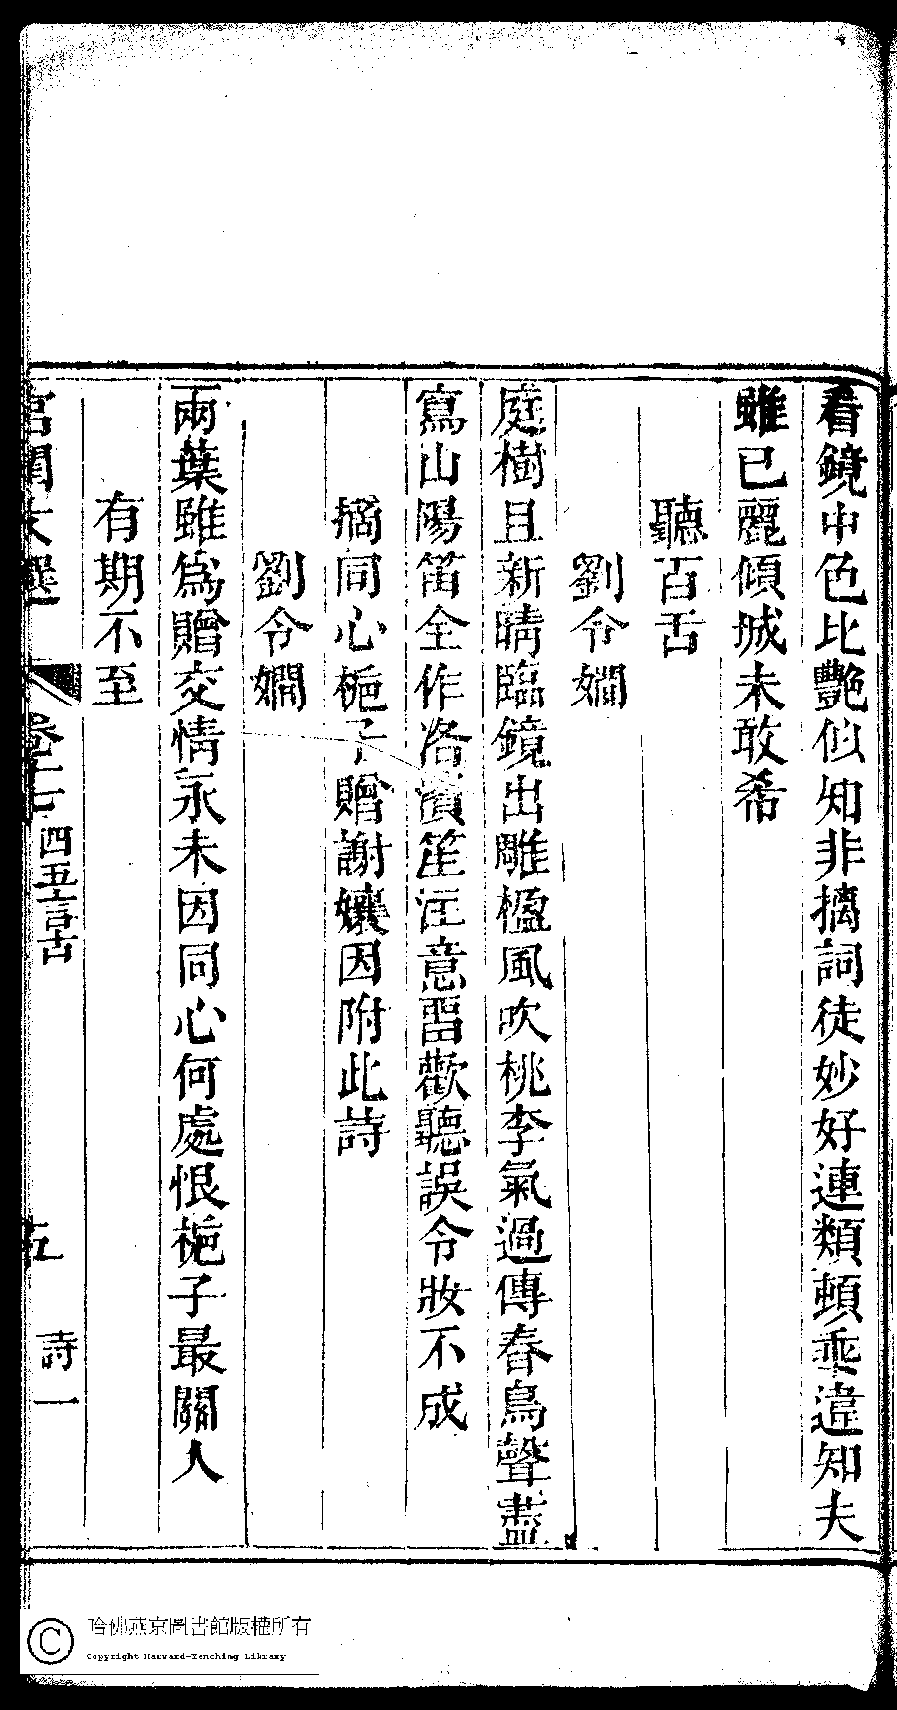 看鏡中色比艷似知非摛詞徒妙好連類頓乖違知夫
雖已麗傾城未敢希
聽百舌
劉令嫺
庭樹且新晴臨鏡出雕楹風吹桃李氣過傳春鳥聲盡
寫山陽笛全作洛濱笙注意畱歡聽誤令妝不成
摘同心梔子贈謝孃因附此詩
劉令嫺
兩葉雖爲贈交情永未因同心何處恨梔子最關人
有期不至
宮閨文選
四五言古
五
詩一
哈佛燕京圖書館版權所有
Copyright Harvard-Yenching Library